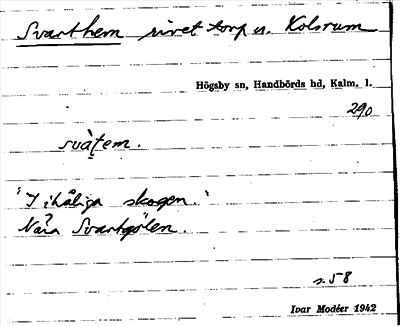 Svarthem rivet torp u. Kolsrum
Högsby sn, Handbörds hd, Kalm. l.
290
svàtem.
"I ihåliga skogen."
Nära Svartgölen.
s. 58
Ivar Modéer 1942